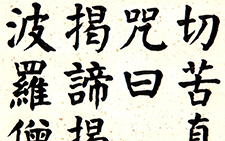 切苦真
咒曰
揭諦揭
波羅僧